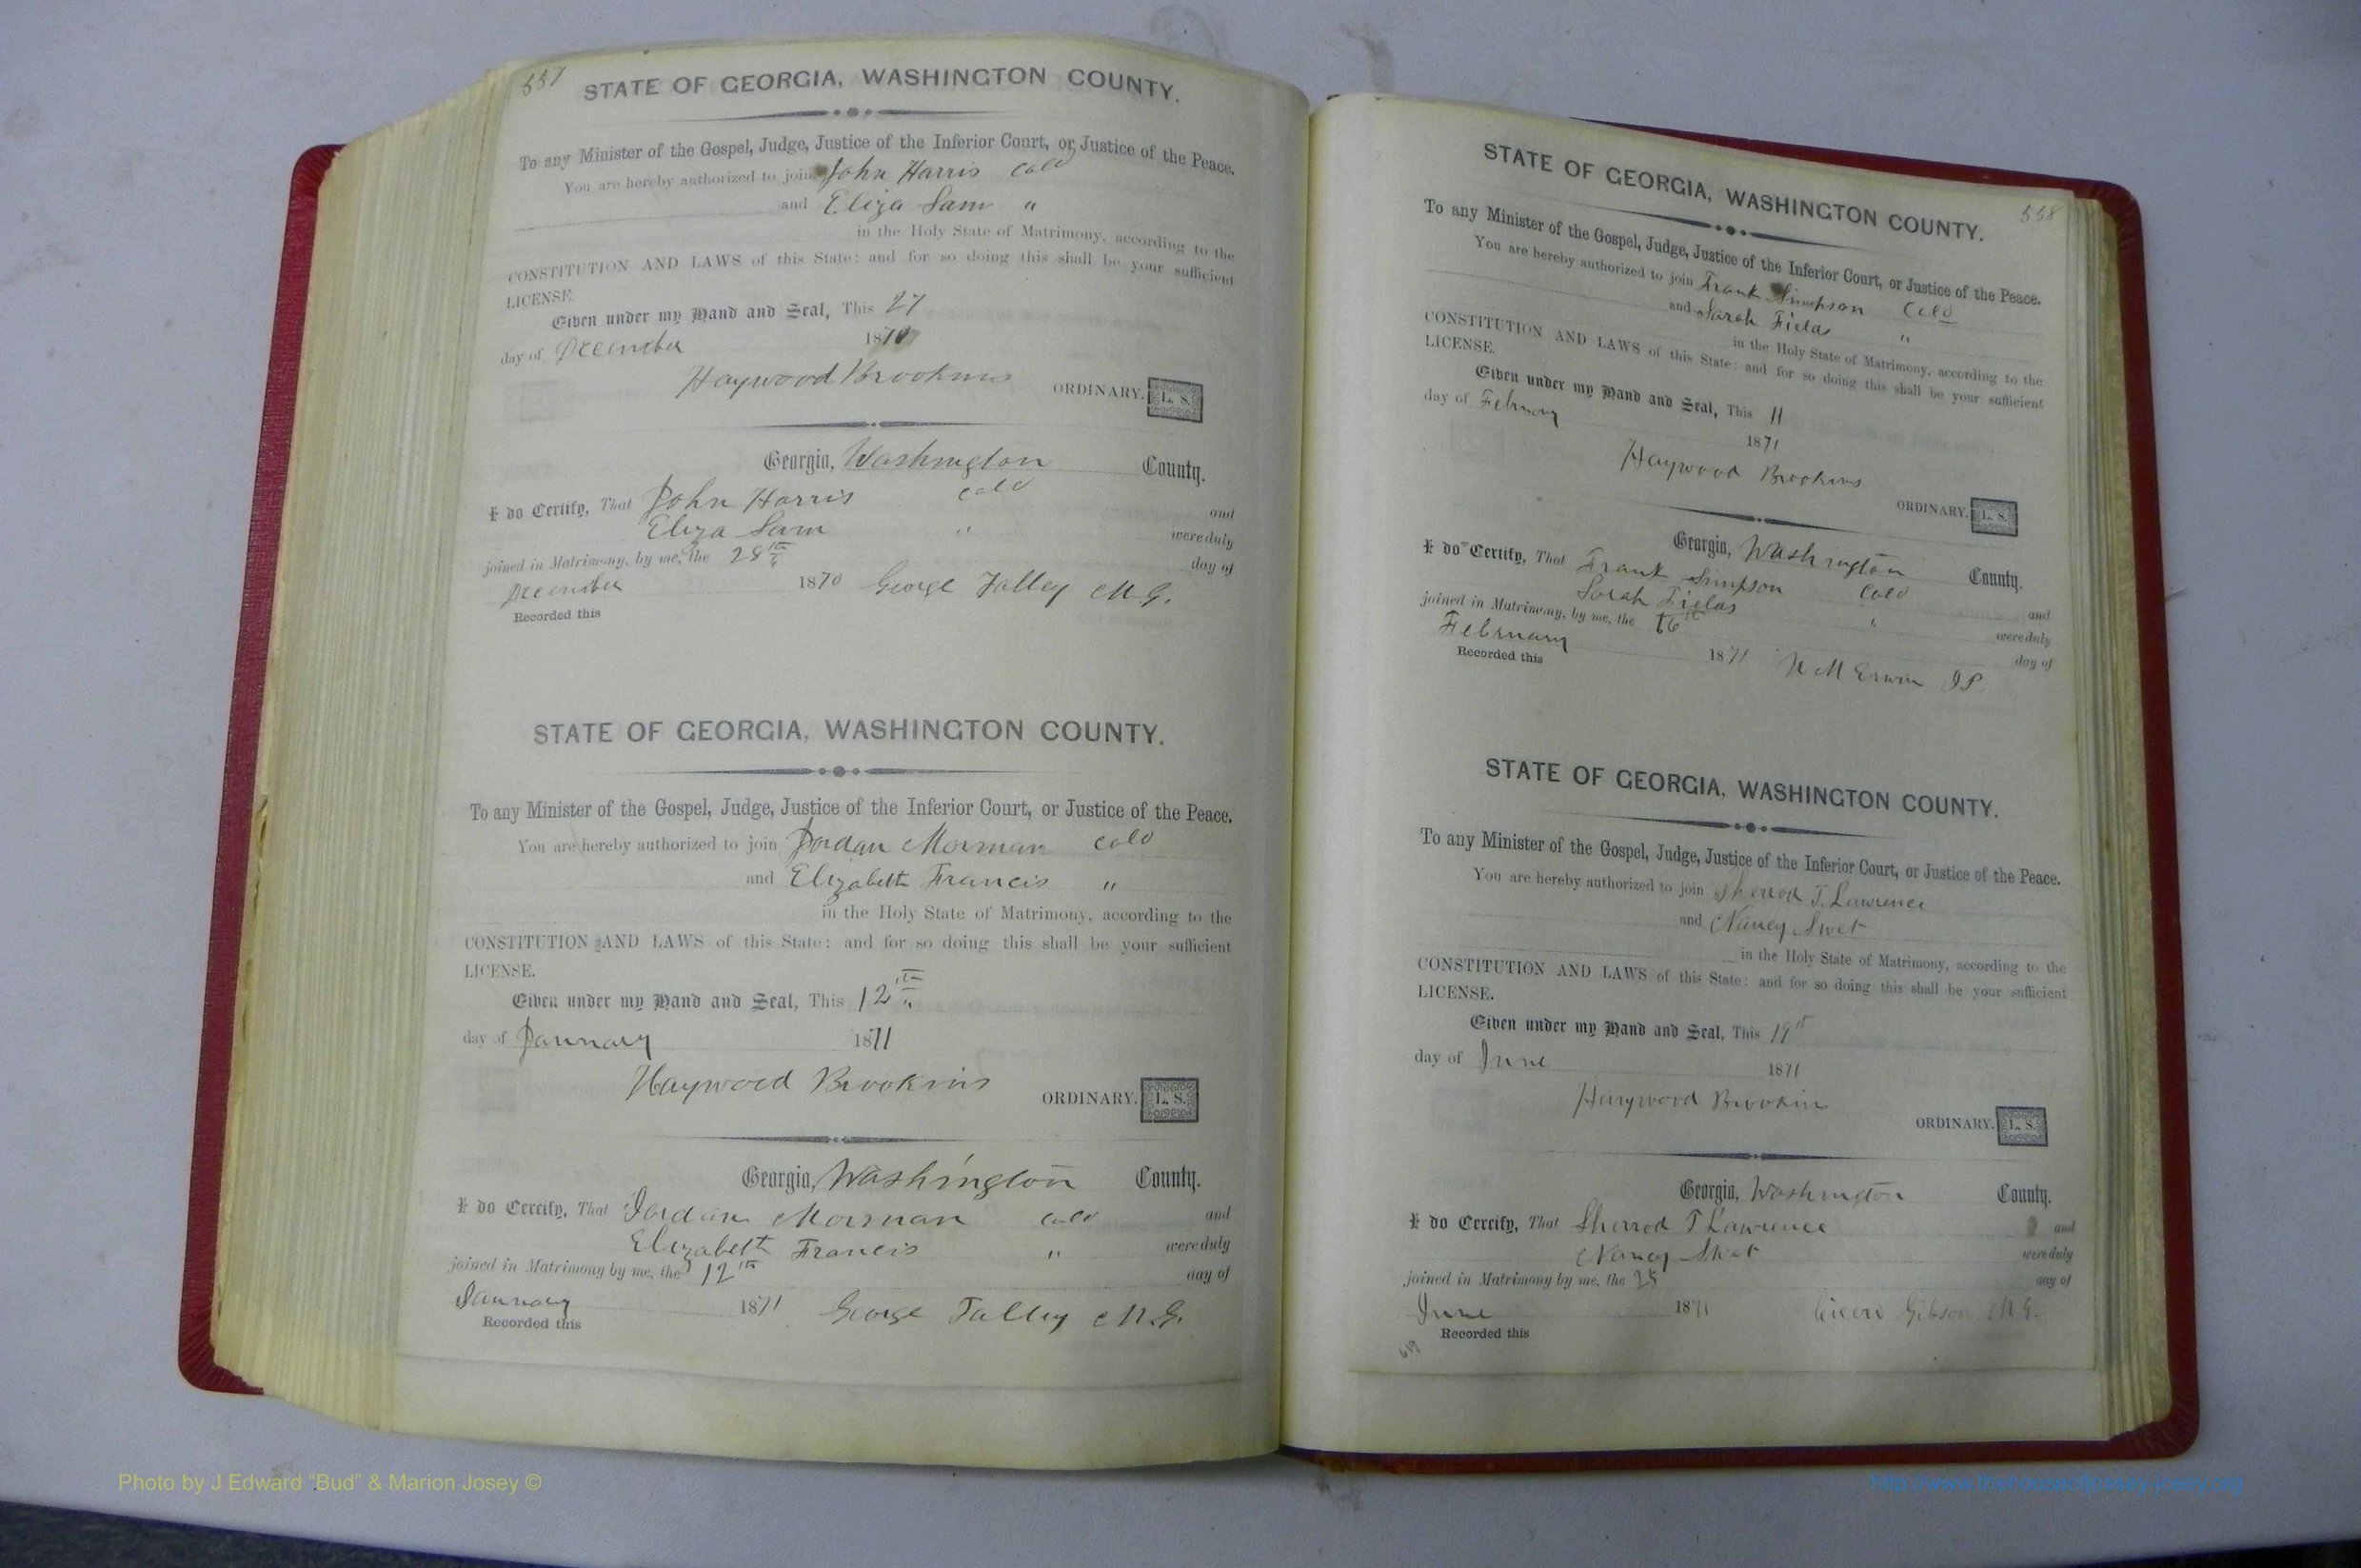 557
STATE OF GEORGIA, WASHINGTON COUNTY.
To any Minister of the Gospel, Judge, Justice of the Inferior Court, or Justice of the Peace.
You are hereby authorized to join John Harris Cold
and Eliza Sam "
in the Holy State of Matrimony, according to the
CONSTITUTION AND LAWS of this State: and for so doing this shall be your sufficient
LICENSE.
Given under my Hand and Seal, This 27
day of December 1870
Haywood Brookins ORDINARY. L. S.
Georgia, Washington County.
I do Certify, That John Harris Cold and
Eliza Sam " were duly
joined in Matrimony, by me, the 28th day of
December 1870 George Talley M.G.
Recorded this
STATE OF GEORGIA, WASHINGTON COUNTY.
To any Minister of the Gospel, Judge, Justice of the Inferior Court, or Justice of the Peace.
You are hereby authorized to join Jordan Morman Cold
and Elizabeth Francis "
in the Holy State of Matrimony, according to the
CONSTITUTION AND LAWS of this State: and for so doing this shall be your sufficient
LICENSE.
Given under my Hand and Seal, This 12th
day of January 1871
Haywood Brookins ORDINARY. L. S.
Georgia, Washington County.
I do Certify, That Jordan Morman Cold and
Elizabeth Francis " were duly
joined in Matrimony by me, the 12th day of
January 1871 George Talley M.G.
Recorded this
558
STATE OF GEORGIA, WASHINGTON COUNTY.
To any Minister of the Gospel, Judge, Justice of the Inferior Court, or Justice of the Peace.
You are hereby authorized to join Frank Simpson Cold
and Sarah Fields "
in the Holy State of Matrimony, according to the
CONSTITUTION AND LAWS of this State: and for so doing this shall be your sufficient
LICENSE.
Given under my Hand and Seal, This 11
day of February 1871
Haywood Brookins
ORDINARY. L. S.
Georgia, Washington County.
I do Certify, That Frank Simpson Cold and
Sarah Fields " were duly
joined in Matrimony, by me, the 16th day of
February 1871 N M Erwin J P.
Recorded this
STATE OF GEORGIA, WASHINGTON COUNTY.
To any Minister of the Gospel, Judge, Justice of the Inferior Court, or Justice of the Peace.
You are hereby authorized to join Sherrod T. Lawrence
and Nancy Swet
in the Holy State of Matrimony, according to the
CONSTITUTION AND LAWS of this State: and for so doing this shall be your sufficient
LICENSE.
Given under my Hand and Seal, This 19th
day of June 1871
Haywood Brookin
ORDINARY. L. S.
Georgia, Washington County.
I do Certify, That Sherrod T Lawrence and
Nancy Swet were duly
joined in Matrimony by me, the 25 day of
June 1871 Cicero Gibson M.G.
Recorded this
619
Photo by J Edward "Bud" & Marion Josey ©